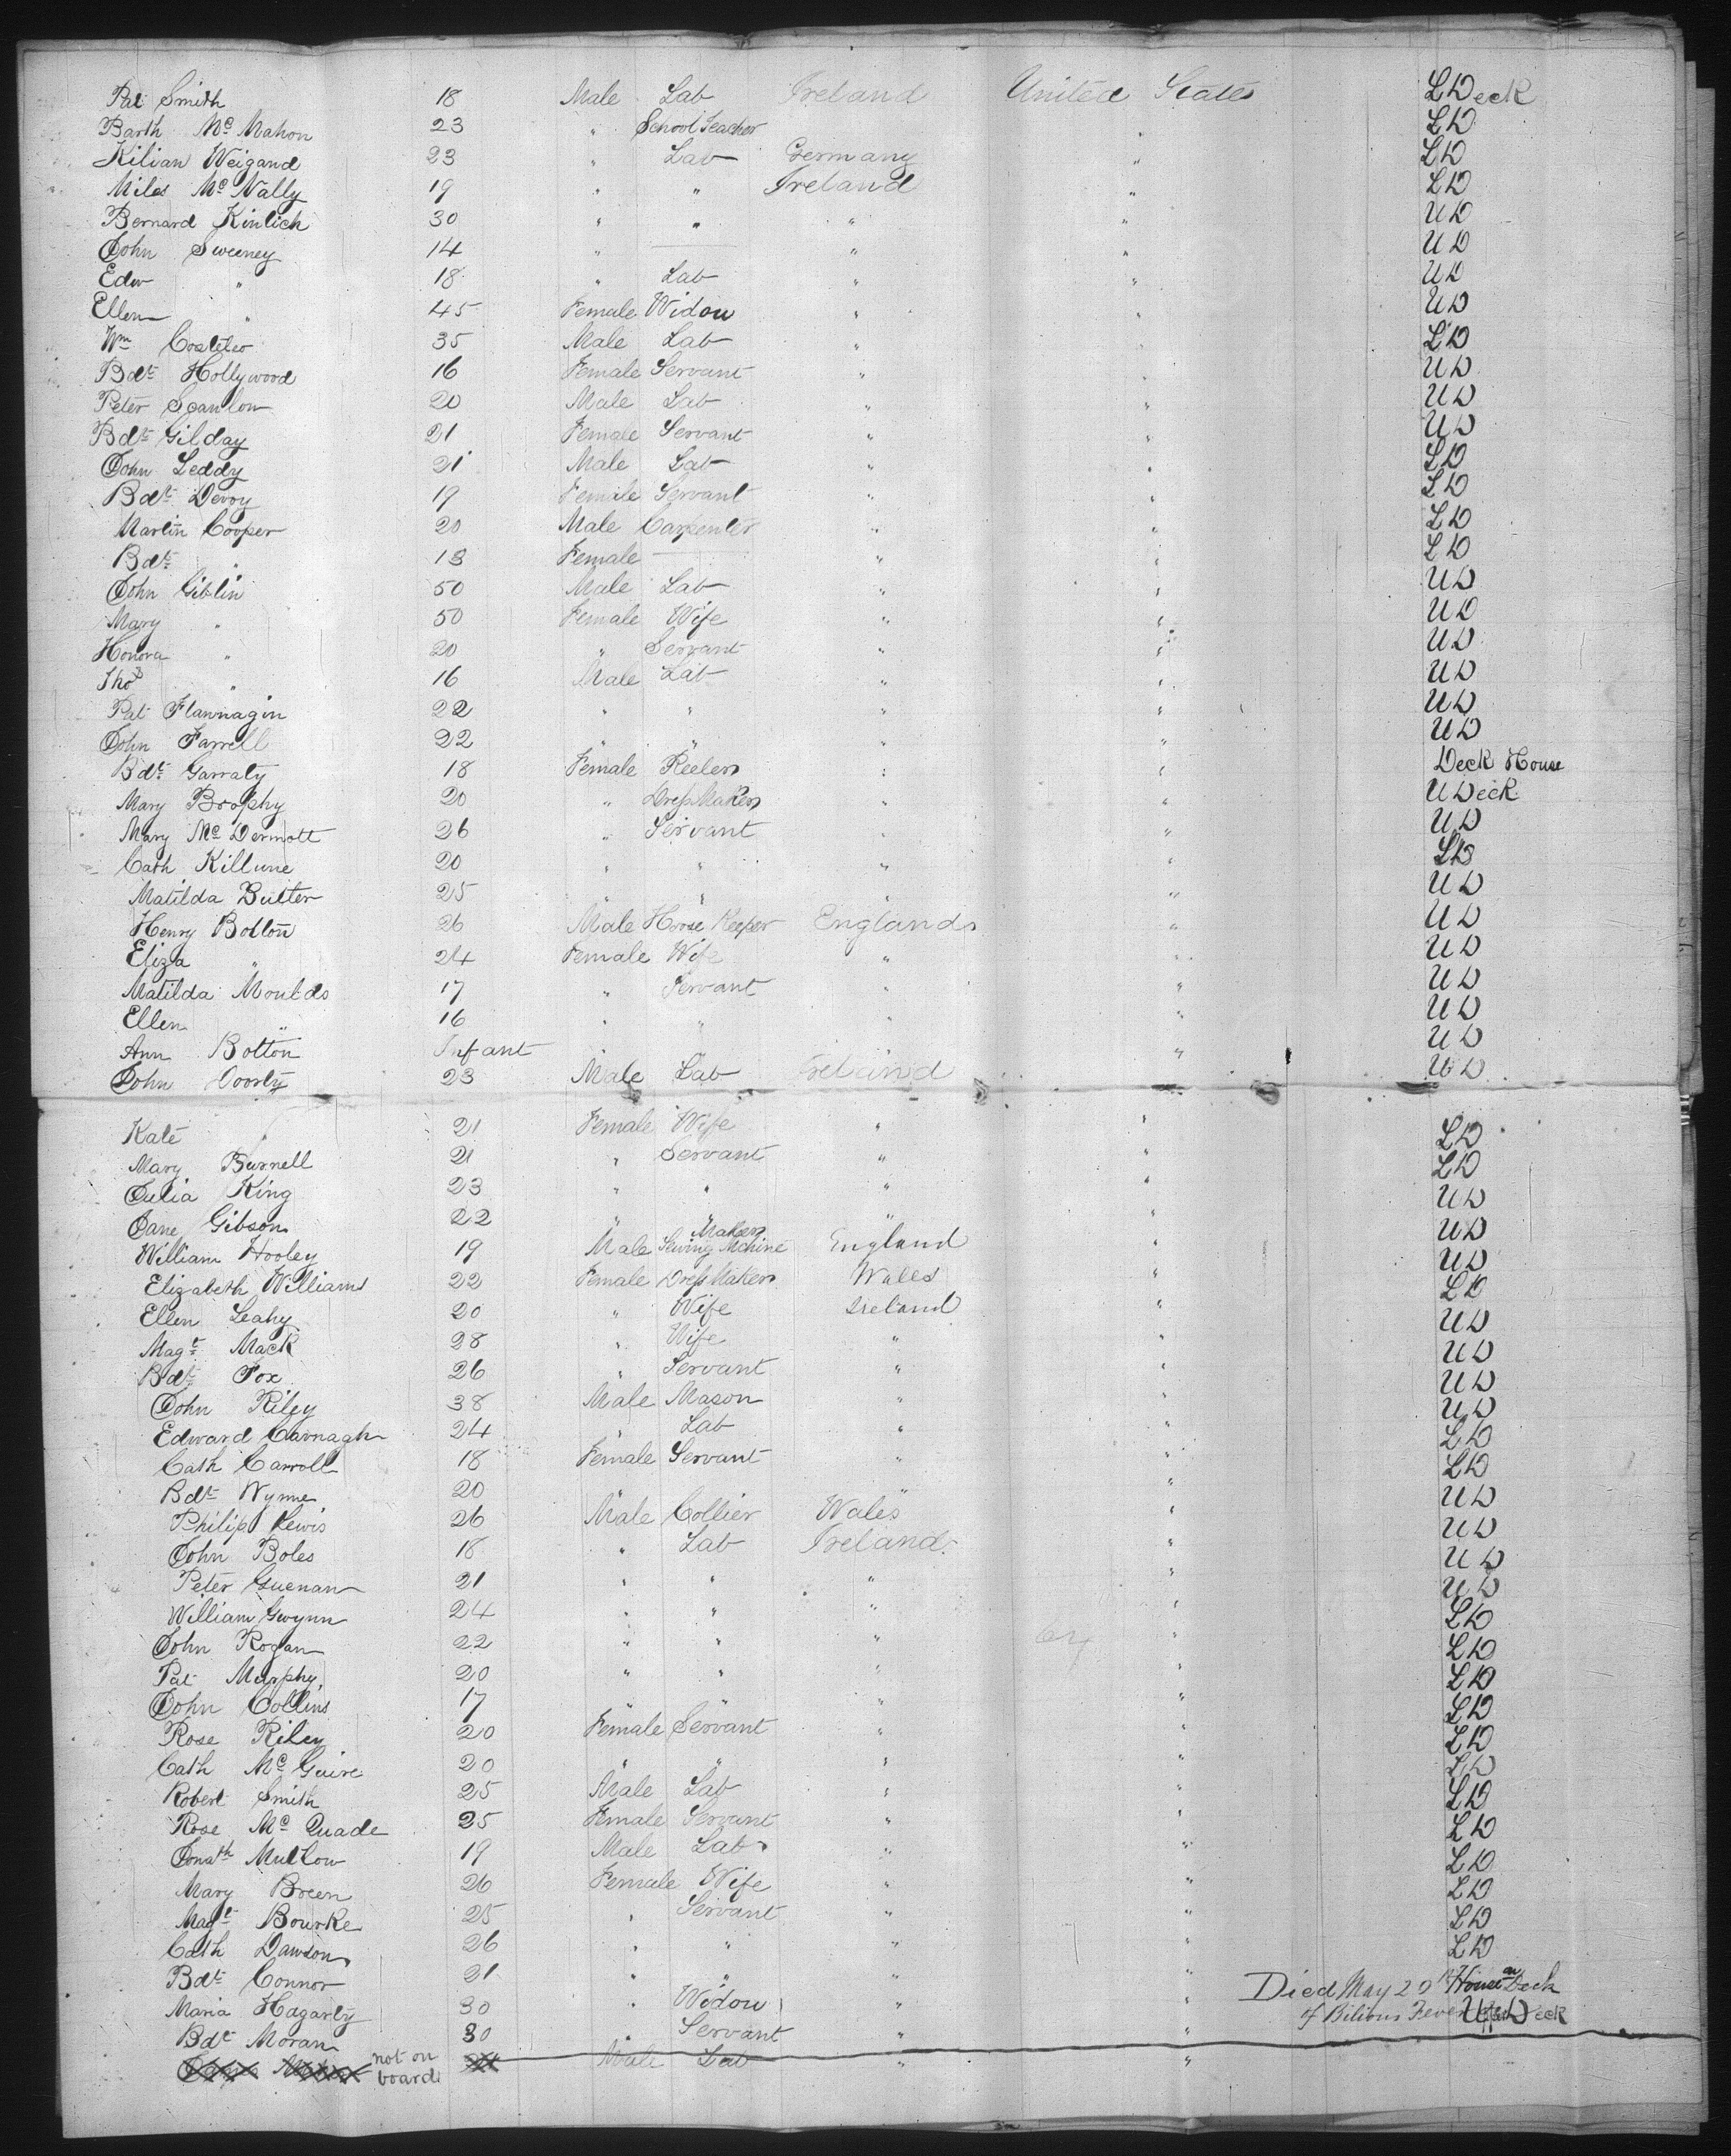 Pat Smith 18 Male Lab Ireland United States L Deck
Barth Mc Mahon 23 " School Teacher " L D
Kilian Weigand 23 " Lab Germany " L D
Miles Mc Nally 19 " " Ireland " L D
Bernard Kinlich 30 " " " " U D
John Sweeney 14 " — " " U D
Edw " 18 " Lab " " U D
Ellen " 45 Female Widow " " U D
Wm Costeleo 35 Male Lab " " L D
Bdt Hollywood 16 Female Servant " " U D
Peter Scanlon 20 Male Lab " " U D
Bdt Gilday 21 Female Servant " " U D
John Leddy 21 Male Lab " " L D
Bdt Devoy 19 Female Servant " " L D
Martin Cooper 20 Male Carpenter " " L D
Bdt " 13 Female — " " L D
John Giblin 50 Male Lab " " U D
Mary " 50 Female Wife " " U D
Honora " 20 " Servant " " U D
Thos " 16 Male Lab " " U D
Pat Flannagin 22 " " " " U D
John Farrell 22 " " " " U D
Bdt Garraty 18 Female Reeler " " Deck House
Mary Brophy 20 " Dress Maker " " U Deck
Mary Mc Dermott 26 " Servant " " U D
Cath Killune 20 " " " " L D
Matilda Butter 25 " " " " U D
Henry Bolton 26 Male Horse Keeper England " U D
Eliza " 24 Female Wife " " U D
Matilda Moulds 17 " Servant " " U D
Ellen " 16 " " " " U D
Ann Bolton Infant " " " " U D
John Doorly 23 Male Lab Ireland " U D
Kate " 21 Female Wife " " L D
Mary Burnell 21 " Servant " " L D
Julia King 23 " " " " U D
Jane Gibson 22 " " " " U D
William Hooley 19 Male Sewing Mchine Maker England " U D
Elizabeth Williams 22 Female Dress Maker Wales " L D
Ellen Leahy 20 " Wife Ireland " U D
Magt Mack 28 " Wife " " U D
Bdt Fox 26 " Servant " " U D
John Riley 38 Male Mason " " U D
Edward Cavnagh 24 " Lab " " L D
Cath Carroll 18 Female Servant " " L D
Bdt Wynne 20 " " " " U D
Philip Lewis 26 Male Collier Wales " U D
John Boles 18 " Lab Ireland " U D
Peter Guenan 21 " " " " U D
William Gwynn 24 " " " " L D
John Rogan 22 " " " " L D
Pat Murphy 20 " " " " L D
John Collins 17 " " " " L D
Rose Riley 20 Female Servant " " L D
Cath Mc Guire 20 " " " " L D
Robert Smith 25 Male Lab " " L D
Rose Mc Quade 25 Female Servant " " L D
Jonath Mullow 19 Male Lab " " L D
Mary Breen 26 Female Wife " " L D
Magt Bourke 25 " Servant " " L D
Cath Dawson 26 " " " " L D
Bdt Connor 21 " " " " House on Deck
Maria Hagarty 30 " Widow " " Died May 29 of Bilious Fever U Deck
Bdt Moran 30 " Servant " "
not on board Male Lab " "